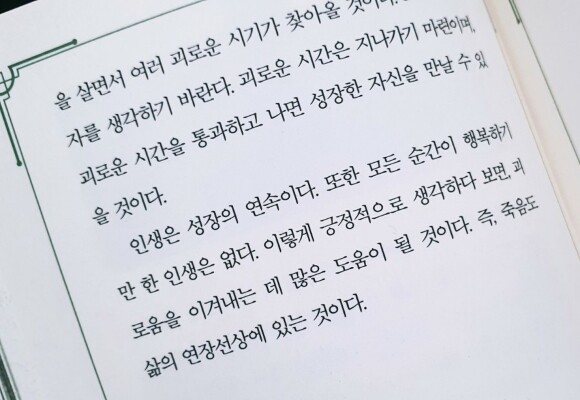 을 살면서 여러 괴로운 시기가 찾아올 것이다.
자를 생각하기 바란다. 괴로운 시간은 지나가기 마련이며,
괴로운 시간을 통과하고 나면 성장한 자신을 만날 수 있
을 것이다.
인생은 성장의 연속이다. 또한 모든 순간이 행복하기
만 한 인생은 없다. 이렇게 긍정적으로 생각하다 보면, 괴
로움을 이겨내는 데 많은 도움이 될 것이다. 즉, 죽음도
삶의 연장선상에 있는 것이다.